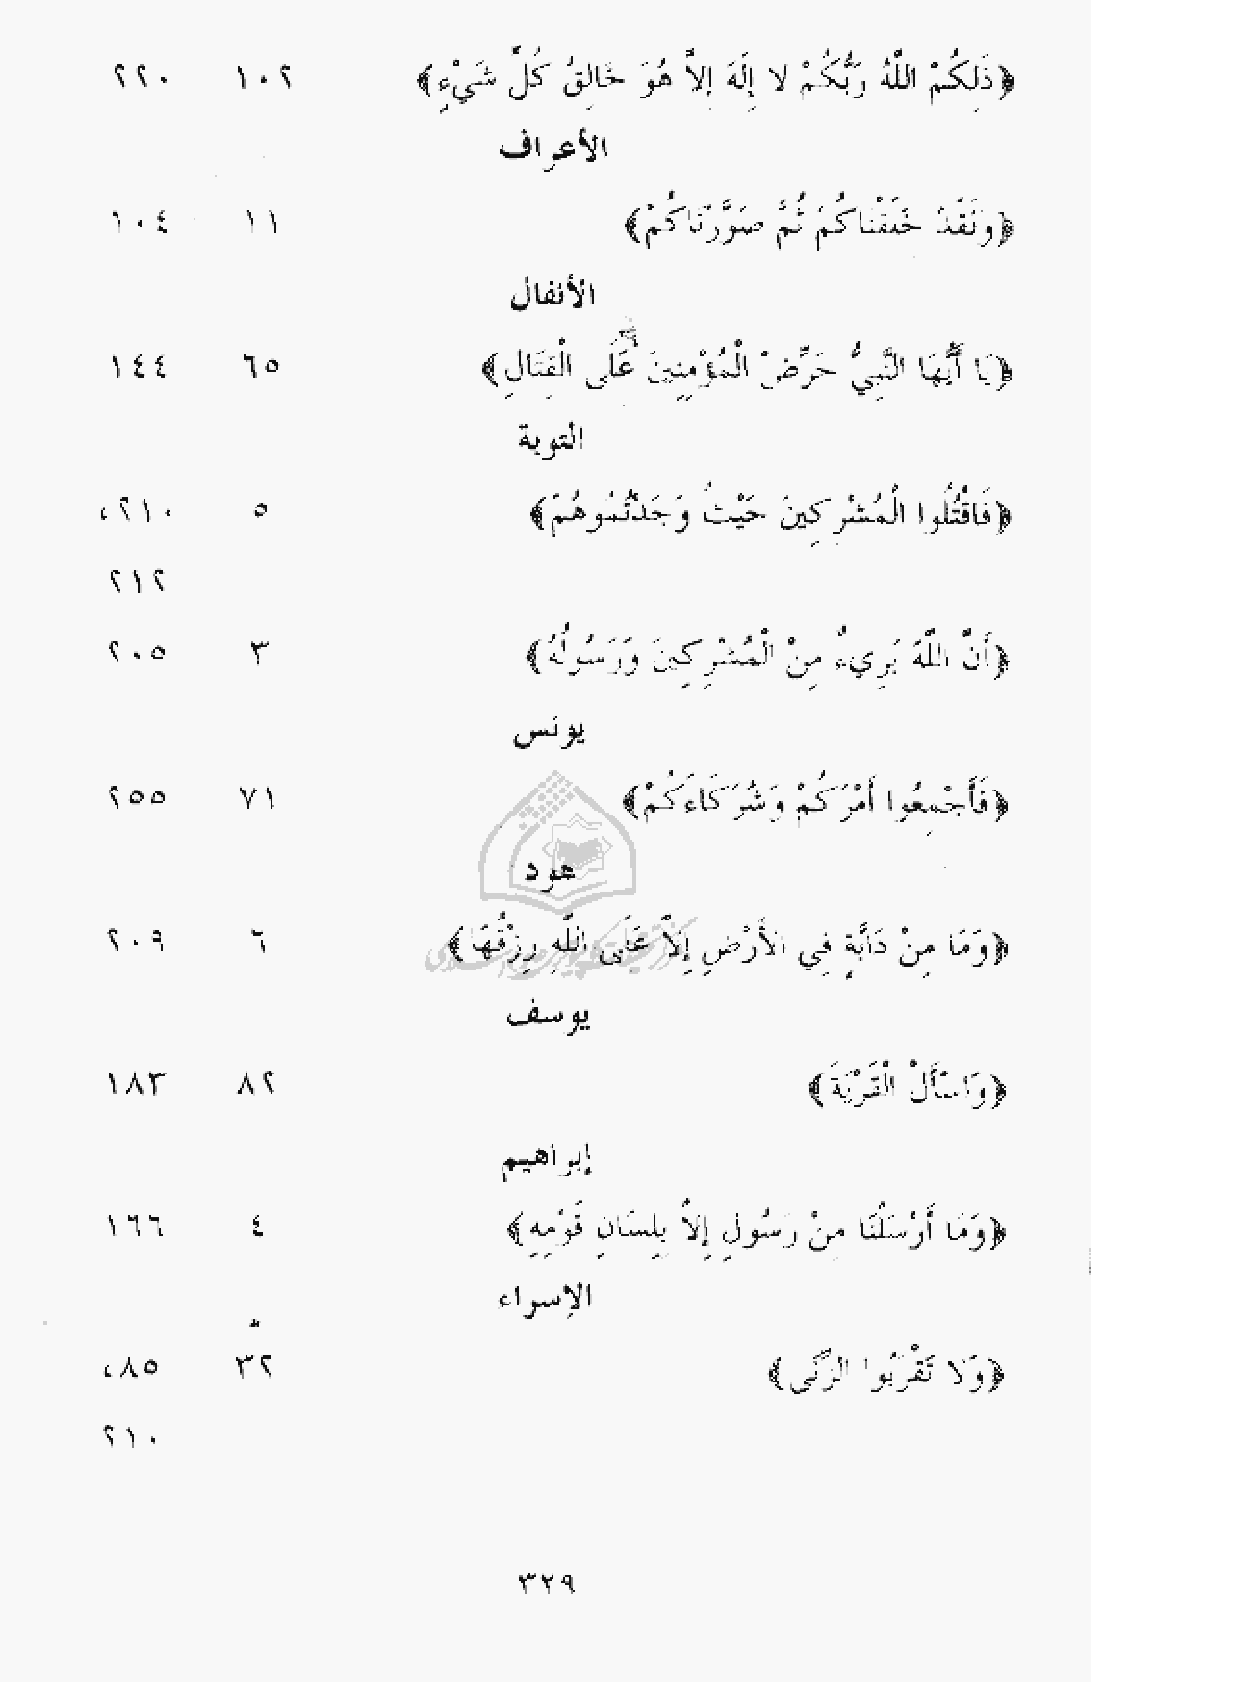 ﴿ذَلِكُمْ اللَّهُ رَبُّكُمْ لا إِلَهَ إِلاَّ هُوَ خَالِقُ كُلِّ شَيْءٍ﴾ ١٠٢ ٢٢٠
الأعراف
﴿وَلَقَدْ خَلَقْنَاكُمْ ثُمَّ صَوَّرْنَاكُمْ﴾ ١١ ١٠٤
الأنفال
﴿يَا أَيُّهَا النَّبِيُّ حَرِّضْ الْمُؤْمِنِينَ عَلَى الْقِتَالِ﴾ ٦٥ ١٤٤
التوبة
﴿فَاقْتُلُوا الْمُشْرِكِينَ حَيْثُ وَجَدْتُمُوهُمْ﴾ ٥ ٢١٠،
٢١٢
﴿أَنَّ اللَّهَ بَرِيءٌ مِنْ الْمُشْرِكِينَ وَرَسُولُهُ﴾ ٣ ٢٠٥
يونس
﴿فَأَجْمِعُوا أَمْرَكُمْ وَشُرَكَاءَكُمْ﴾ ٧١ ٢٥٥
هود
﴿وَمَا مِنْ دَابَّةٍ فِي الأَرْضِ إِلاَّ عَلَى اللَّهِ رِزْقُهَا﴾ ٦ ٢٠٩
يوسف
﴿وَاسْأَلْ الْقَرْيَةَ﴾ ٨٢ ١٨٣
إبراهيم
﴿وَمَا أَرْسَلْنَا مِنْ رَسُولٍ إِلاَّ بِلِسَانِ قَوْمِهِ﴾ ٤ ١٦٦
الإسراء
﴿وَلا تَقْرَبُوا الزِّنَى﴾ ٣٢ ٨٥،
٢١٠
٣٢٩